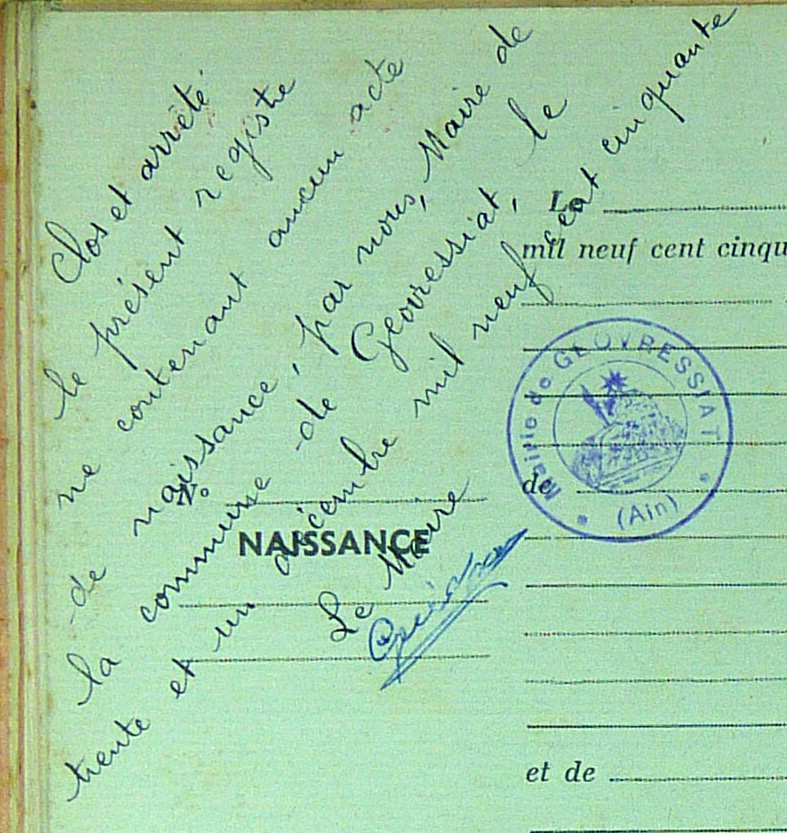 Clos et arrêté
le présent registre
ne contenant aucun acte
de naissance, par nous, Maire de
la commune de Geovressiat, le
trente et un décembre mil neuf cent cinquante
Le Maire
N°
NAISSANCE
Le
mil neuf cent cinqu
Mairie de GEOVRESSIAT
(Ain)
de
et de